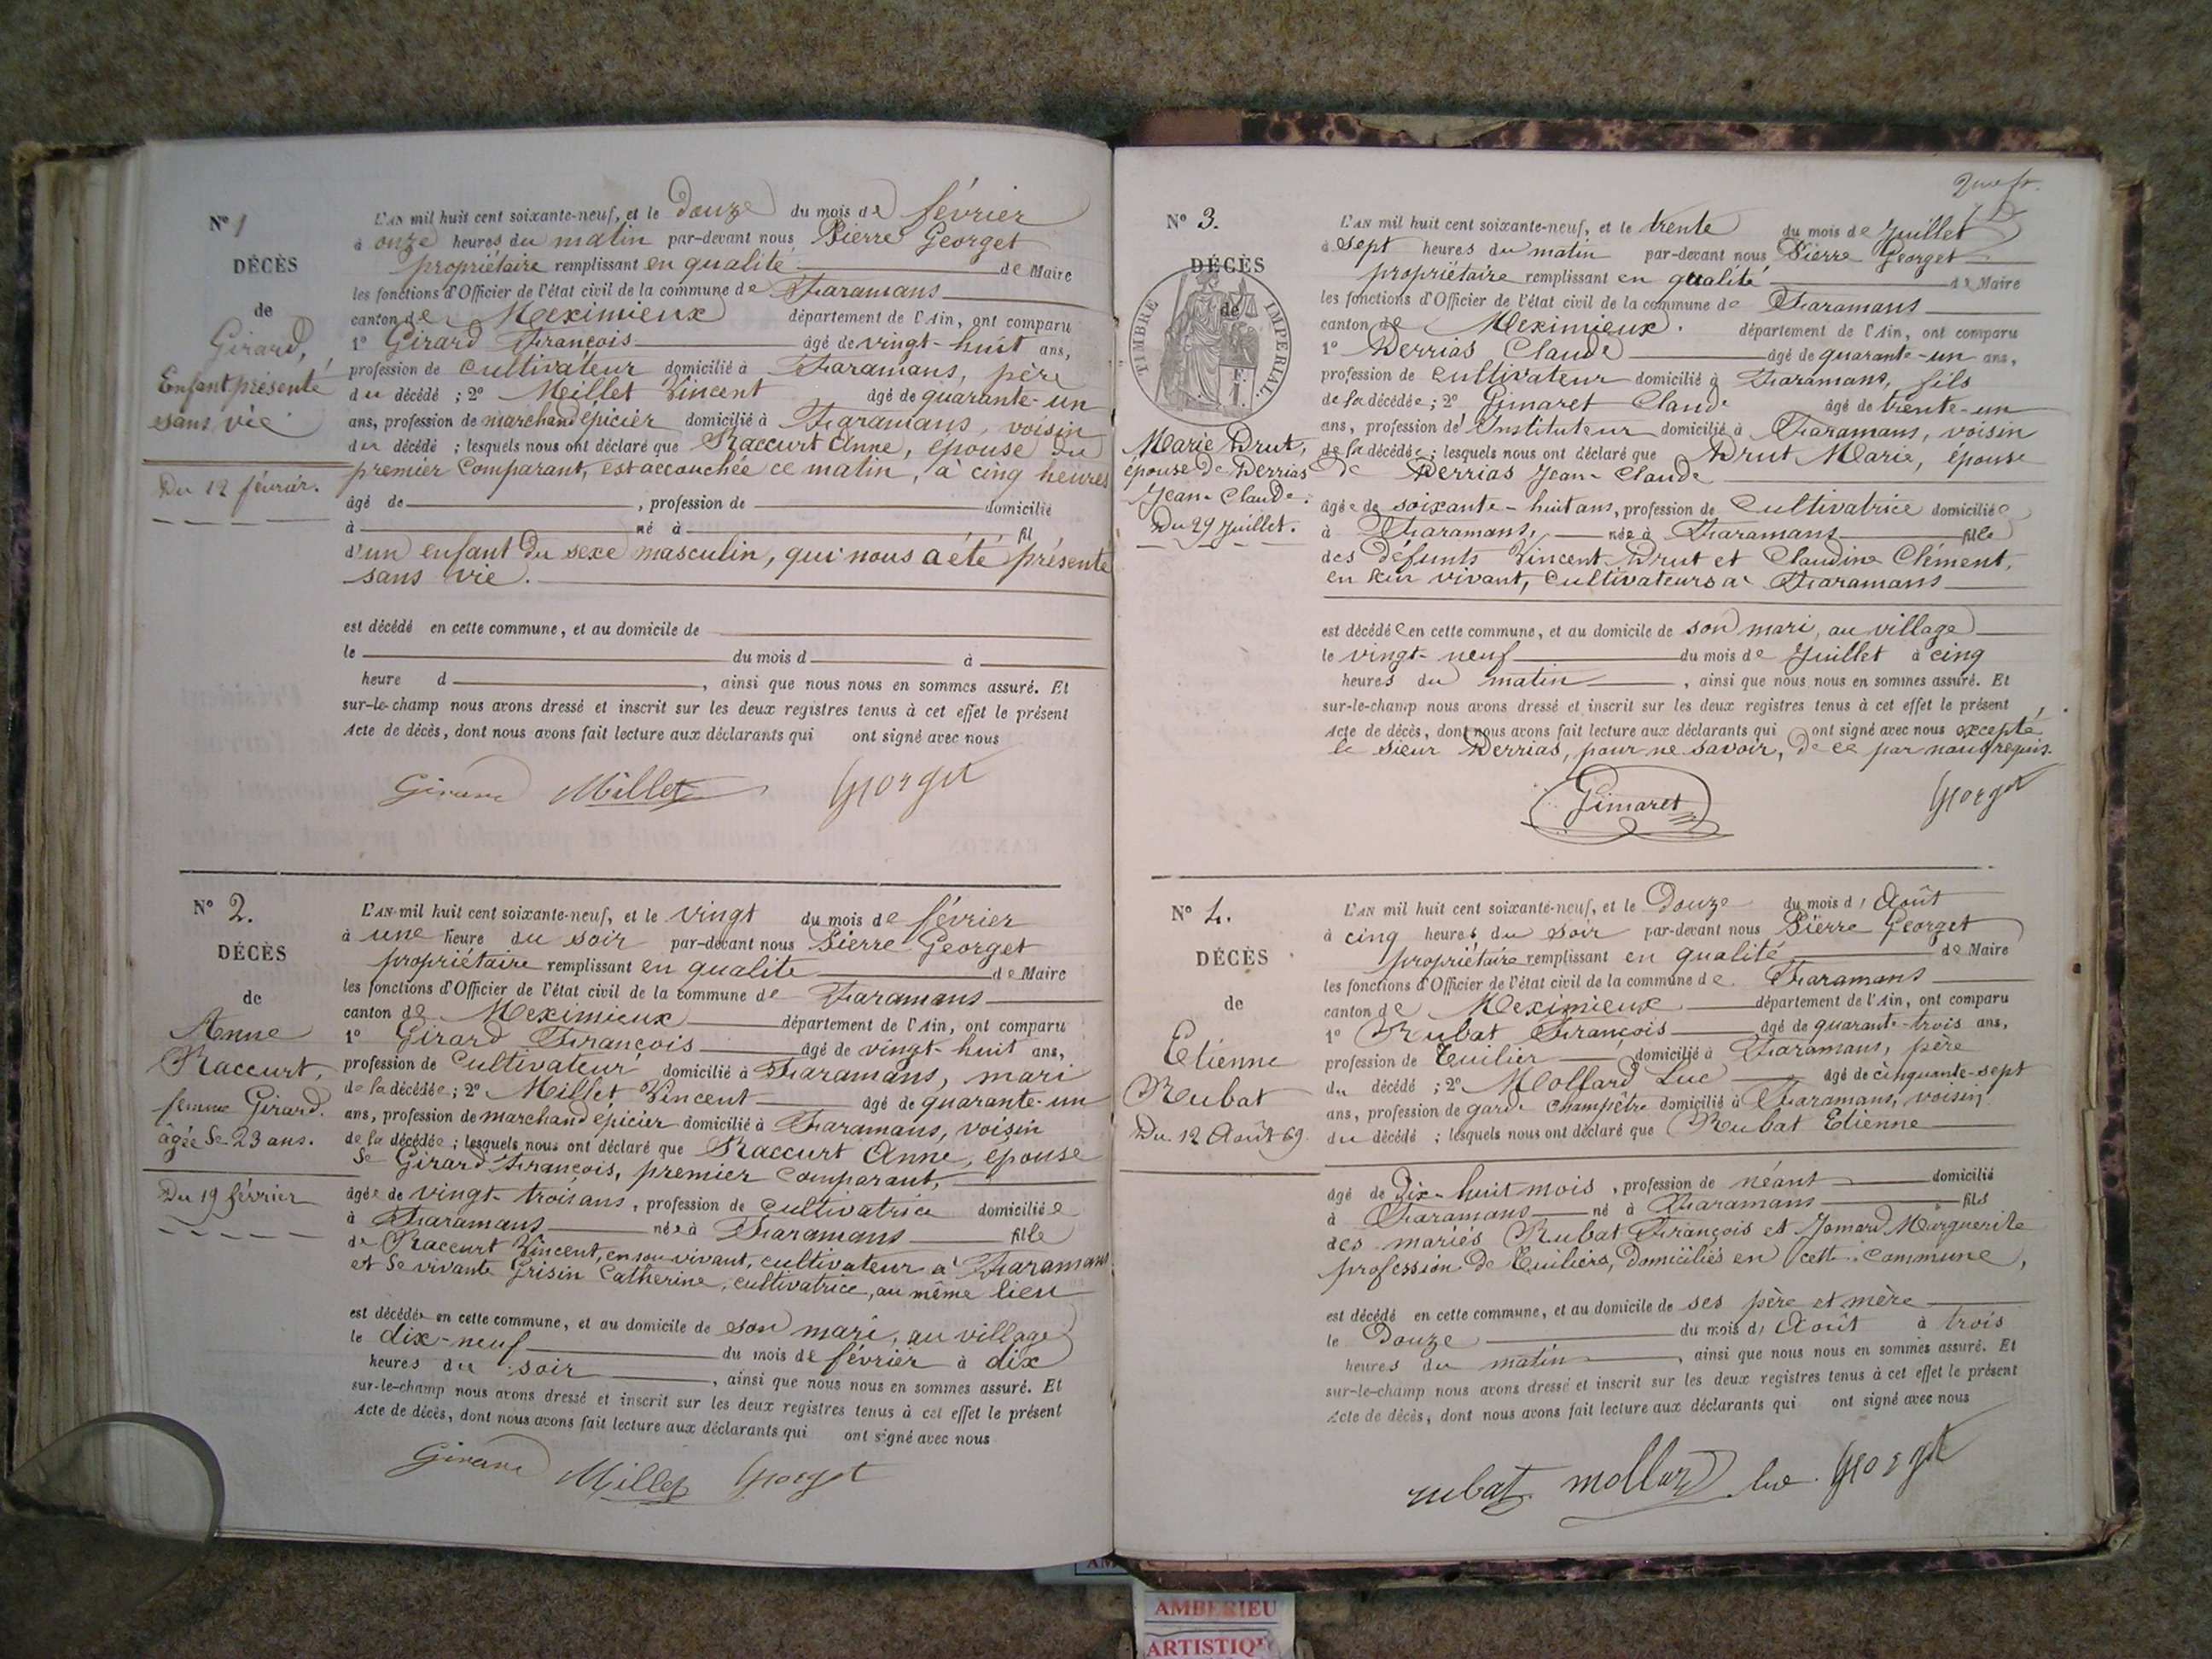 N° 1
DÉCÈS
de
Girard,
Enfant présenté
sans vie
Du 12 février.
L'AN mil huit cent soixante-neuf, et le douze du mois de février
à onze heures du matin par-devant nous Pierre Georget
propriétaire remplissant en qualité de Maire
les fonctions d'Officier de l'état civil de la commune de Faramans
canton de Meximieux département de l'Ain, ont comparu
1° Girard François âgé de vingt-huit ans,
profession de cultivateur domicilié à Faramans, père
du décédé ; 2° Millet Vincent âgé de quarante-un
ans, profession de marchand épicier domicilié à Faramans, voisin
du décédé ; lesquels nous ont déclaré que Raccurt Anne, épouse du
premier comparant, est accouchée ce matin, à cinq heures
âgé de , profession de domicilié
à né à fil
d'un enfant du sexe masculin, qui nous a été présenté
sans vie.
est décédé en cette commune, et au domicile de
le du mois d à
heure d , ainsi que nous nous en sommes assuré. Et
sur-le-champ nous avons dressé et inscrit sur les deux registres tenus à cet effet le présent
Acte de décès, dont nous avons fait lecture aux déclarants qui ont signé avec nous
Girard Millet Georget
N° 2.
DÉCÈS
de
Anne
Raccurt,
femme Girard.
âgée de 23 ans.
Du 19 février
L'AN mil huit cent soixante-neuf, et le vingt du mois de février
à une heure du soir par-devant nous Pierre Georget
propriétaire remplissant en qualité de Maire
les fonctions d'Officier de l'état civil de la commune de Faramans
canton de Meximieux département de l'Ain, ont comparu
1° Girard François âgé de vingt-huit ans,
profession de cultivateur domicilié à Faramans, mari
de la décédée ; 2° Millet Vincent âgé de quarante-un
ans, profession de marchand épicier domicilié à Faramans, voisin
de la décédée ; lesquels nous ont déclaré que Raccurt Anne, épouse
de Girard François, premier comparant,
âgée de vingt-trois ans, profession de cultivatrice domiciliée
à Faramans née à Faramans fille
de Raccurt Vincent, en son vivant, cultivateur à Faramans
et de vivante Grisin Catherine, cultivatrice, au même lieu
est décédée en cette commune, et au domicile de son mari, au village
le dix-neuf du mois de février à dix
heures du soir , ainsi que nous nous en sommes assuré. Et
sur-le-champ nous avons dressé et inscrit sur les deux registres tenus à cet effet le présent
Acte de décès, dont nous avons fait lecture aux déclarants qui ont signé avec nous
Girard Millet Georget
N° 3.
DÉCÈS
de
TIMBRE IMPÉRIAL.
F.
1.
Marie Drut,
épouse de Derrias
Jean-Claude.
Du 29 Juillet.
L'AN mil huit cent soixante-neuf, et le trente du mois de Juillet
à sept heures du matin par-devant nous Pierre Georget
propriétaire remplissant en qualité de Maire
les fonctions d'Officier de l'état civil de la commune de Faramans
canton de Meximieux. département de l'Ain, ont comparu
1° Derrias Claude âgé de quarante-un ans,
profession de cultivateur domicilié à Faramans, fils
de la décédée ; 2° Gimaret Claude âgé de trente-un
ans, profession d'Instituteur domicilié à Faramans, voisin
de la décédée ; lesquels nous ont déclaré que Drut Marie, épouse
de Derrias Jean-Claude
âgée de soixante-huit ans, profession de Cultivatrice domiciliée
à Faramans, née à Faramans fille
des défunts Vincent Drut et Claudine Clément,
en leur vivant, cultivateurs à Faramans
est décédée en cette commune, et au domicile de son mari, au village
le vingt-neuf du mois de Juillet à cinq
heures du matin , ainsi que nous nous en sommes assuré. Et
sur-le-champ nous avons dressé et inscrit sur les deux registres tenus à cet effet le présent
Acte de décès, dont nous avons fait lecture aux déclarants qui ont signé avec nous excepté
le sieur Derrias, pour ne savoir, de ce par nous requis.
Gimaret Georget
N° 4.
DÉCÈS
de
Etienne
Rubat
Du 12 Août 69.
L'AN mil huit cent soixante-neuf, et le Douze du mois d'Août
à cinq heures du soir par-devant nous Pierre Georget
propriétaire remplissant en qualité de Maire
les fonctions d'Officier de l'état civil de la commune de Faramans
canton de Meximieux département de l'Ain, ont comparu
1° Rubat François âgé de quarante-trois ans,
profession de Tuilier domicilié à Faramans, père
du décédé ; 2° Mollard Luc âgé de cinquante-sept
ans, profession de garde champêtre domicilié à Faramans, voisin
du décédé ; lesquels nous ont déclaré que Rubat Etienne
âgé de Dix-huit mois, profession de néant domicilié
à Faramans né à Faramans fils
des mariés Rubat François et Jomard Marguerite
profession de Tuiliers, Domiciliés en cette commune,
est décédé en cette commune, et au domicile de ses père et mère
le Douze du mois d'Août à trois
heures du matin , ainsi que nous nous en sommes assuré. Et
sur-le-champ nous avons dressé et inscrit sur les deux registres tenus à cet effet le présent
Acte de décès, dont nous avons fait lecture aux déclarants qui ont signé avec nous
rubat mollard luc Georget
AMBERIEU
ARTISTIQ